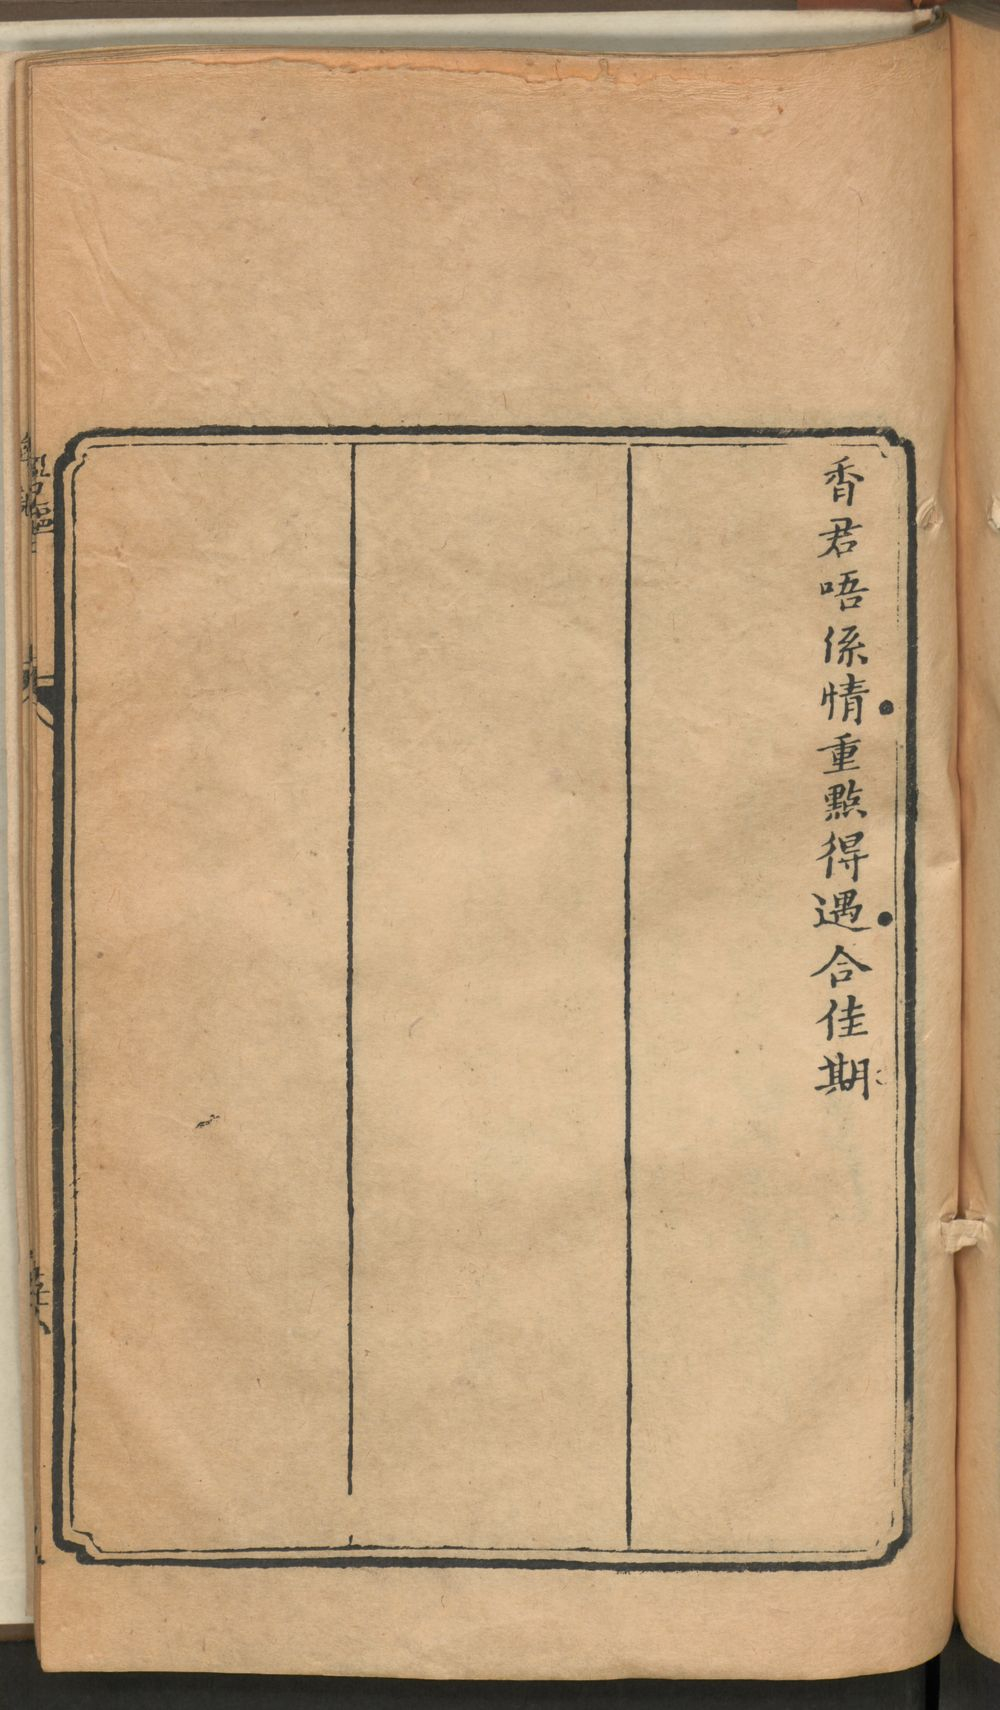 香君唔係情重點得遇合佳期